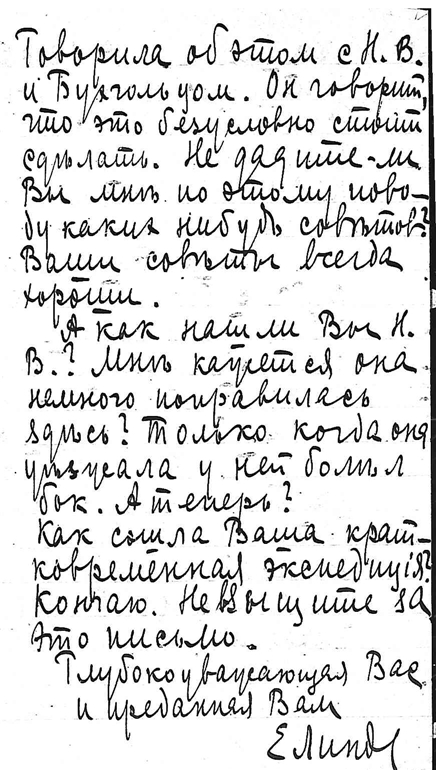 Говорила об этом с Н. В.
и Бухгольцом. Он говорит,
что это безусловно стоит
сдѣлать. Не дадите-ли
Вы мнѣ по этому пово-
ду каких нибудь совѣтов?
Ваши совѣты всегда
хороши.
А как нашли Вы Н.
В.? Мнѣ кажется она
немного поправилась
здѣсь? Только когда она
уѣзжала у ней болѣл
бок. А теперь?
Как сошла Ваша крат-
ковременная экспедиція?
Кончаю. Не взыщите за
это письмо.
Глубокоуважающая Вас
и преданная Вам
Е Линд